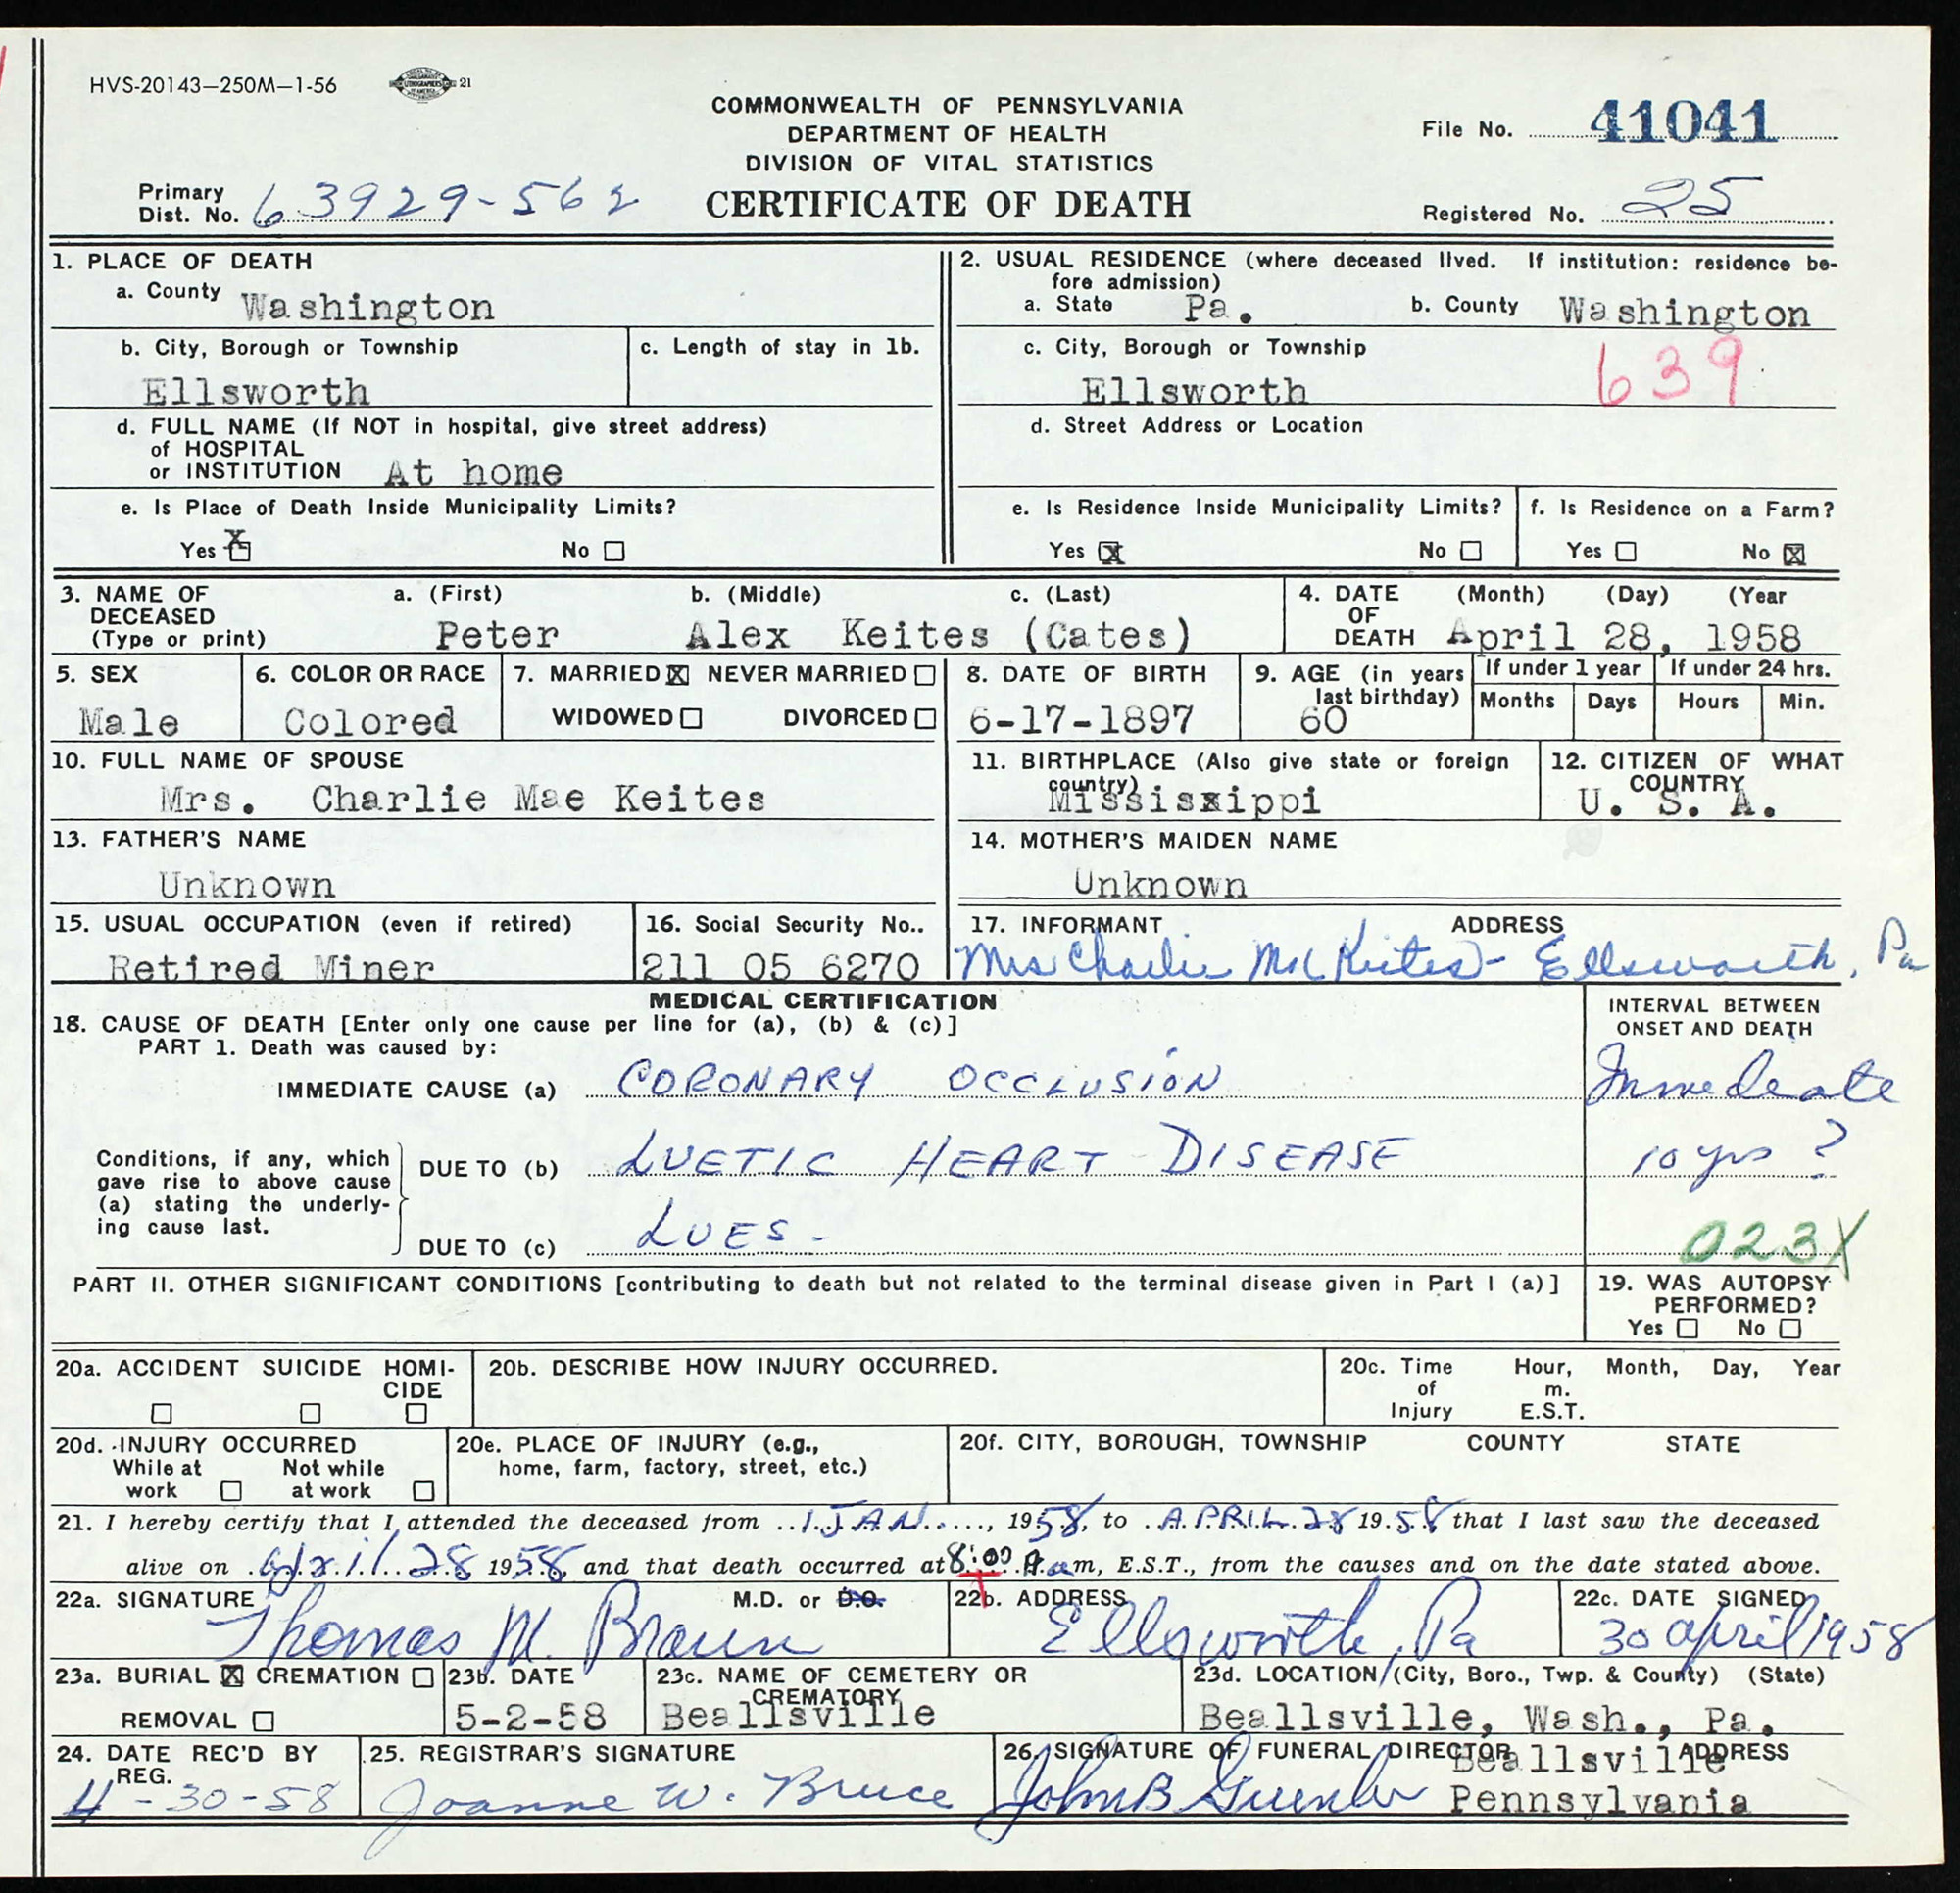 HVS-20143—250M—1-56 21
COMMONWEALTH OF PENNSYLVANIA
DEPARTMENT OF HEALTH
DIVISION OF VITAL STATISTICS
CERTIFICATE OF DEATH
File No. 41041
Primary
Dist. No. 63929-562
Registered No. 25
1. PLACE OF DEATH
a. County Washington
b. City, Borough or Township
Ellsworth
c. Length of stay in 1b.
d. FULL NAME (If NOT in hospital, give street address)
of HOSPITAL
or INSTITUTION At home
e. Is Place of Death Inside Municipality Limits?
Yes X No
2. USUAL RESIDENCE (where deceased lived. If institution: residence be-
fore admission)
a. State Pa. b. County Washington
c. City, Borough or Township
Ellsworth 639
d. Street Address or Location
e. Is Residence Inside Municipality Limits?
Yes X No
f. Is Residence on a Farm?
Yes No X
3. NAME OF DECEASED (Type or print)
a. (First) b. (Middle) c. (Last)
Peter Alex Keites (Cates)
4. DATE OF DEATH (Month) (Day) (Year
April 28, 1958
5. SEX
Male
6. COLOR OR RACE
Colored
7. MARRIED X NEVER MARRIED
WIDOWED DIVORCED
8. DATE OF BIRTH
6-17-1897
9. AGE (in years last birthday)
60
If under 1 year
Months Days
If under 24 hrs.
Hours Min.
10. FULL NAME OF SPOUSE
Mrs. Charlie Mae Keites
11. BIRTHPLACE (Also give state or foreign country)
Missisxippi
12. CITIZEN OF WHAT COUNTRY
U. S. A.
13. FATHER'S NAME
Unknown
14. MOTHER'S MAIDEN NAME
Unknown
15. USUAL OCCUPATION (even if retired)
Retired Miner
16. Social Security No..
211 05 6270
17. INFORMANT ADDRESS
Mrs Charlie Keites - Ellsworth, Pa
MEDICAL CERTIFICATION
18. CAUSE OF DEATH [Enter only one cause per line for (a), (b) & (c)]
PART 1. Death was caused by:
INTERVAL BETWEEN
ONSET AND DEATH
IMMEDIATE CAUSE (a) CORONARY OCCLUSION Immedeate
Conditions, if any, which
gave rise to above cause
(a) stating the underly-
ing cause last.
DUE TO (b) LUETIC HEART DISEASE 10 yrs ?
DUE TO (c) LUES - 023X
PART II. OTHER SIGNIFICANT CONDITIONS [contributing to death but not related to the terminal disease given in Part I (a)]
19. WAS AUTOPSY
PERFORMED?
Yes No
20a. ACCIDENT SUICIDE HOMI-
CIDE
20b. DESCRIBE HOW INJURY OCCURRED.
20c. Time of Injury Hour, Month, Day, Year
m.
E.S.T.
20d. INJURY OCCURRED
While at work Not while at work
20e. PLACE OF INJURY (e.g.,
home, farm, factory, street, etc.)
20f. CITY, BOROUGH, TOWNSHIP COUNTY STATE
21. I hereby certify that I attended the deceased from 1 JAN, 1958, to APRIL 28 1958 that I last saw the deceased
alive on April 28 1958 and that death occurred at 8:00 A.m, E.S.T., from the causes and on the date stated above.
22a. SIGNATURE M.D. or D.O.
Thomas M. Braun
22b. ADDRESS
Ellsworth, Pa
22c. DATE SIGNED
30 april 1958
23a. BURIAL X CREMATION
REMOVAL
23b. DATE
5-2-58
23c. NAME OF CEMETERY OR CREMATORY
Beallsville
23d. LOCATION (City, Boro., Twp. & County) (State)
Beallsville, Wash., Pa.
24. DATE REC'D BY REG.
4-30-58
25. REGISTRAR'S SIGNATURE
Joanne W. Bruce
26. SIGNATURE OF FUNERAL DIRECTOR ADDRESS
John B Beallsville
Pennsylvania